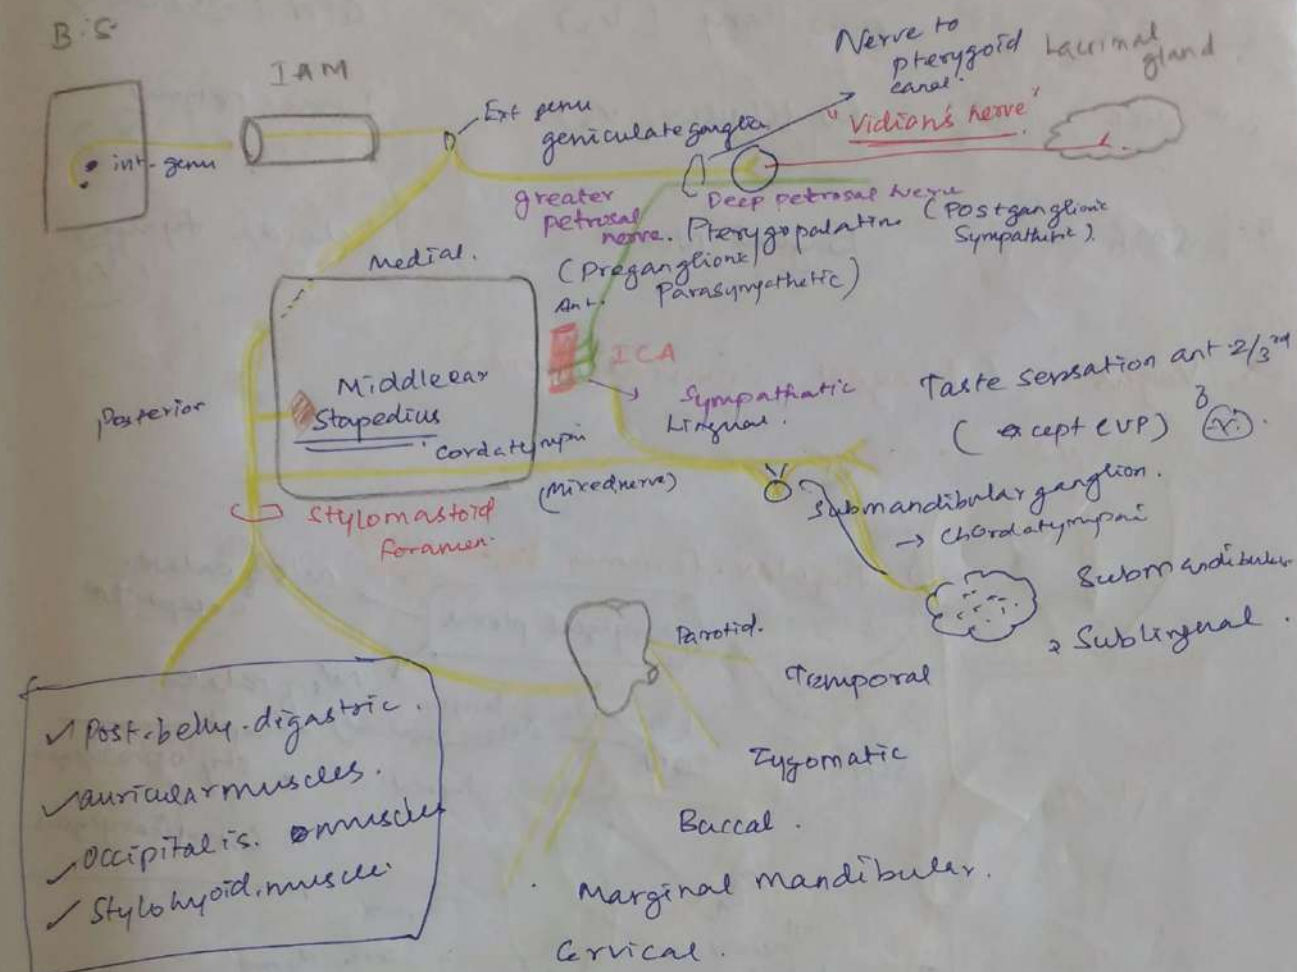 B.S
IAM
int. genu
Ext genu
geniculate ganglia
Nerve to
pterygoid
canal.
Lacrimal
gland
"Vidian's nerve"
greater
petrosal
nerve.
Deep petrosal nerve
(Postganglionic
Sympathetic).
Pterygopalatin
(Preganglionic
Parasympathetic)
Medial.
Ant.
ICA
Sympathatic
Lingual.
Middle ear
Stapedius
Posterior
Cordatympai
(Mixed nerve)
Stylomastoid
foramen.
Taste sensation ant 2/3rd
(except CVP)
Submandibular ganglion.
→ Chordatympai
Submandibular
Sublingual.
Parotid.
Temporal
Zygomatic
Baccal.
Marginal mandibular.
Cervical.
✓ Post. belly. digastric.
✓ auricular muscles.
✓ Occipitalis. muscles
✓ Stylohyoid. muscle.